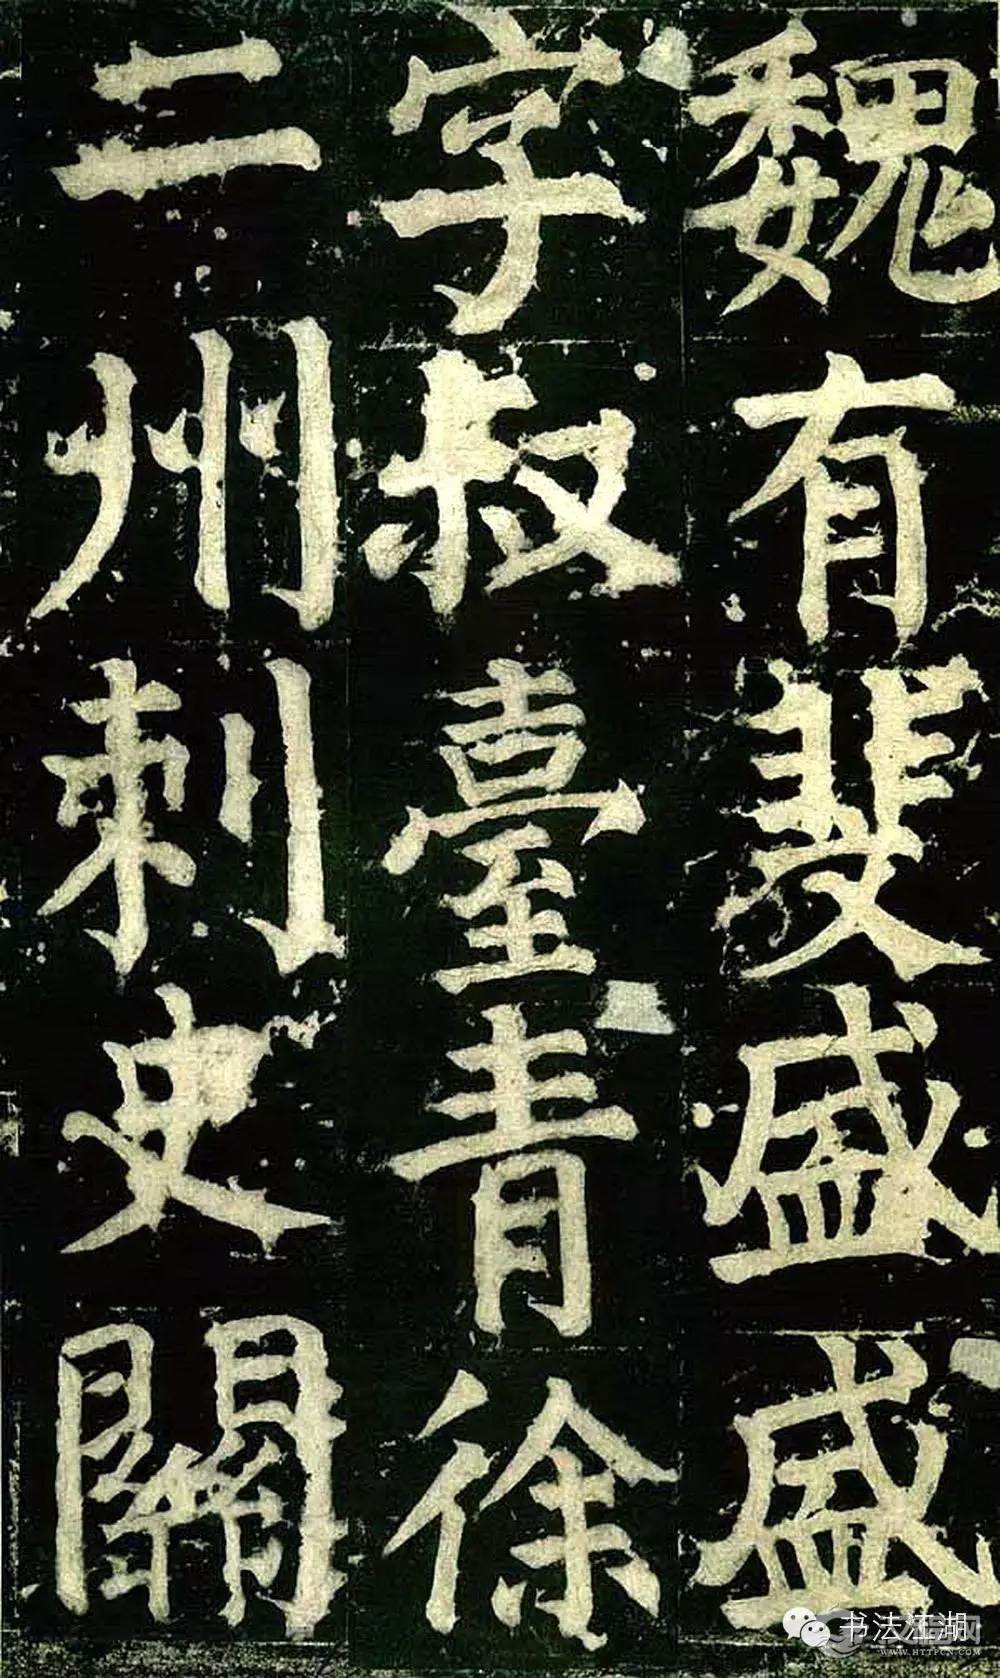 魏有斐盛盛
字叔臺青徐
二州刺史關
书法江湖
WWW.HTTPCN.COM